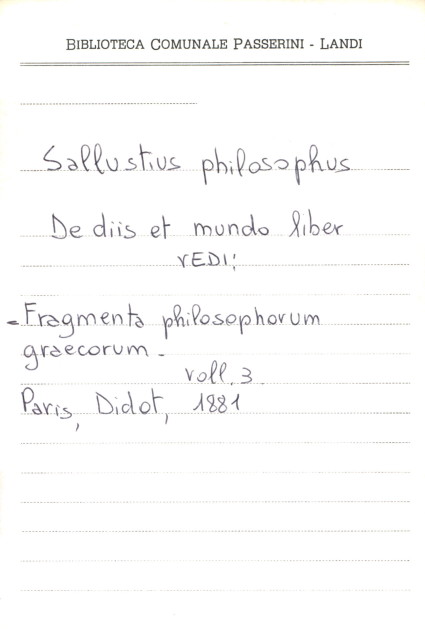 BIBLIOTECA COMUNALE PASSERINI - LANDI
Sallustius philosophus
De diis et mundo liber
VEDI:
= Fragmenta philosophorum
graecorum -
voll. 3
Paris, Didot, 1881